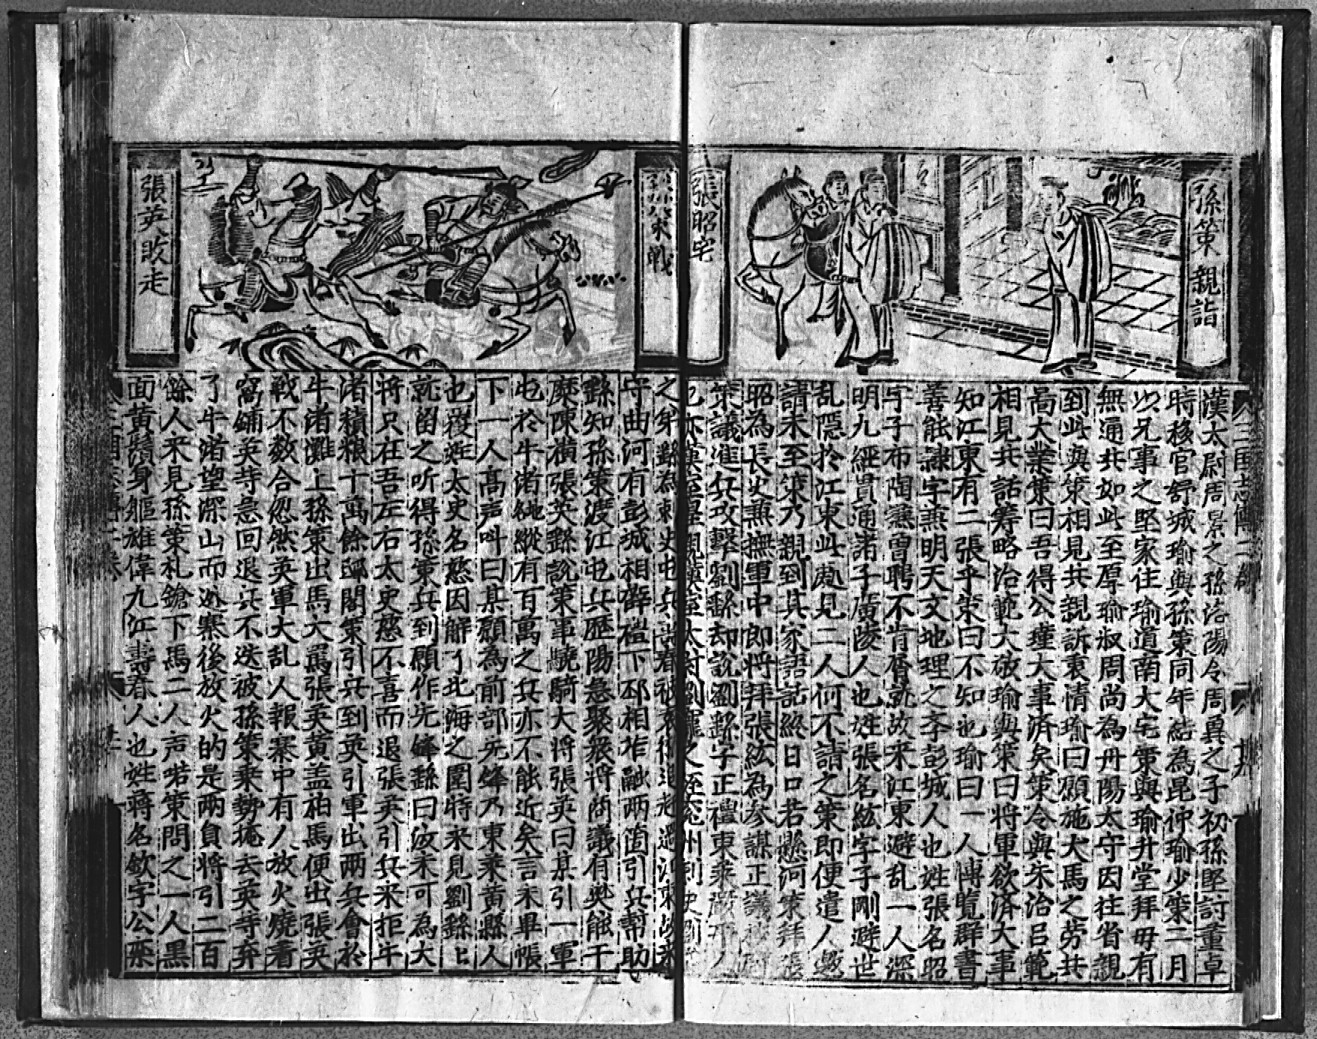 孫策親詣
張昭宅
漢太尉周景之孫洛陽令周異之子初孫堅討董卓
時移官舒城瑜與孫策同年結為昆仲瑜少策二月
以兄事之堅家住瑜道南大宅策與瑜升堂拜母有
無通共如此至厚瑜叔周尚為丹陽太守因往省親
到此與策相見共親訴衷情瑜曰願施犬馬之劳共
啇大業策曰吾得公瑾大事済矣策令與朱治吕範
相見共話筹略治範大破瑜與策曰将軍欲済大事
知江東有二張乎策曰不知也瑜曰一人博覧群書
善能隷字兼明天文地理之李彭城人也姓張名昭
字子布陶謙曾聘不肯屑就故来江東避乱一人深
明九經貫通諸子廣陵人也姓張名紘字子剛避世
乱隱於江東此處見二人何不請之策即便遣人邀
請未至策乃親到其家語話終日口若懸河策拜張
昭為長史兼撫軍中郎将拜張紘為参謀正議
策議進兵攻擊劉繇却說劉繇字正禮東萊
也亦漢室宗親漢室太尉劉寵之姪兖州刺史劉
之弟繇為刺史屯兵
守曲河有彭城相薛禮下邳相笮融两箇引兵幇助
繇知孫策渡江屯兵歷陽急聚衆将商議有樊能于
糜陳横張英繇說策事驍騎大将張英曰某引一軍
屯於牛渚縱有百萬之兵亦不能近矣言未畢帳
下一人髙声呌曰某願為前部先鋒乃東莱黄縣人
也覆姓太史名慈因解了北海之圍時来見劉繇上
就留之听得孫策兵到願作先鋒繇曰汝未可為大
将只在吾左右太史慈不喜而退張英引兵来拒牛
渚積粮十萬餘邸閣策引兵到英引軍出两兵會於
牛渚灘上孫策出馬大罵張英黄盖拍馬便出張英
戰不数合忽然英軍大乱人報寨中有人放火燒着
窩鋪英等急回退兵不迭被孫策乗勢掩去英等弃
了牛渚望深山而迯寨後放火的是两負将引二百
餘人来見孫策札鎗下馬二人声喏策問之一人黒
面黄鬚身軀雄偉九江壽春人也姓蒋名欽字公奕
孫策戰
張英敗走